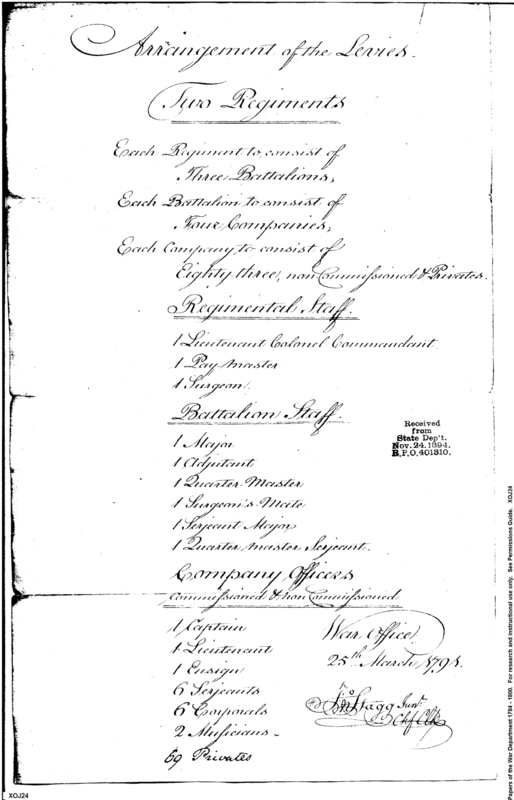 Arrangement of the Levies.
Two Regiments
Each Regiment to consist of
Three Battalions,
Each Battalion to consist of
Four Companies,
Each Company to consist of
Eighty three, non Commissioned & Privates.
Regimental Staff.
1 Lieutenant Colonel Commandant
1 Pay master
1 Surgeon.
Battalion Staff.
1 Major
1 Adjutant
1 Quarter Master
1 Surgeon's Mate
1 Serjeant Major
1 Quarter master Serjeant.
Received
from
State Dep't.
Nov. 24. 1894.
R.P.O. 401310.
Company Officers
Commissioned & non Commissioned
1 Captain
1 Lieutenant
1 Ensign
6 Serjeants
6 Corporals
2 Musicians
69 Privates
War Office
25th March 1791.
Jno Stagg Junr.
Chf Clk
XOJ24
Papers of the War Department 1784 - 1800. For research and instructional use only. See Permissions Guide. XOJ24